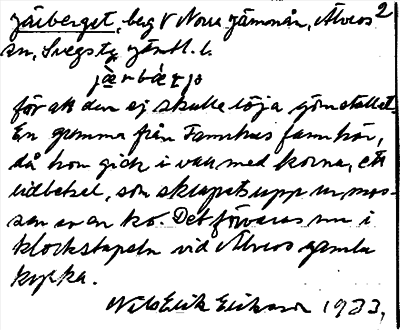 Järberget, berg V Norra Jämnån, Älvros 2
sn, Svegs tg, Jämtl. l.
för att den ej skulle röja gömstället.
En gumma från Fannhus fann här,
då hon gick i vall med korna, ett
ridbetsel, som skrapats upp ur mos-
sen av en ko. Det förvaras nu i
klockstapeln vid Älvros gamla
kyrka.
Nils Erik Eriksson 1933.